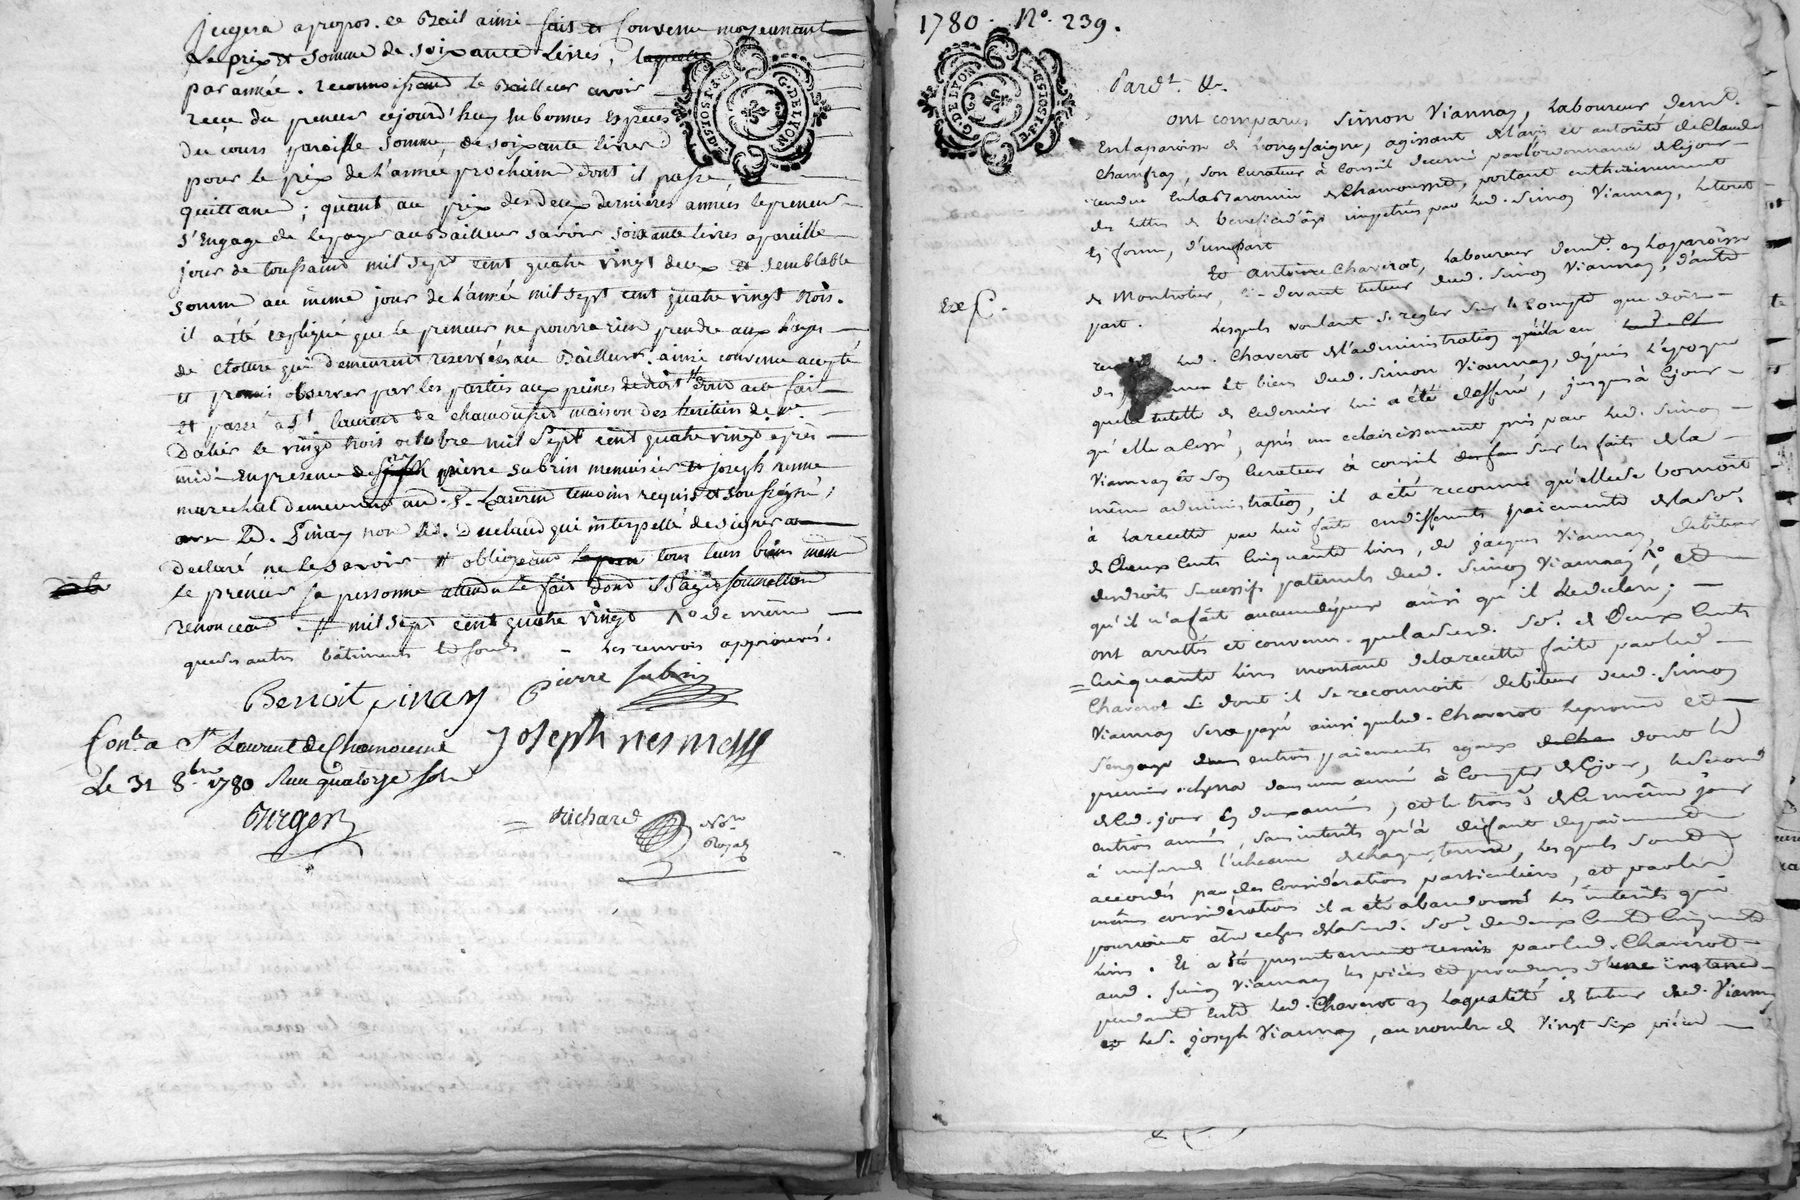 jugera apropos. ce Bail ainsi fait et Convenu moyennant
Le prix et somme de soixante Livres, laquelle
par année. reconnoissant le Bailleur avoir
recu du preneur cejourd'huy en bonnes Especes
du cours pareille somme, de soixante livres
pour le prix de l'année prochaine dont il passe
quittance; quant au prix des deux dernieres années le preneur
s'Engage de le payer au Bailleur savoir soixante livres a pareille
jour de toussaint mil sept cent quatre vingt deux et semblable
somme au même jour de l'année mil sept cent quatre vingt trois.
il a été expliqué que le preneur ne pourra rien prendre aux hayes
de cloture qui demeurent reservées au Bailleur. ainsi convenu accepté
et promis observer par les parties aux peines de droit dont acte fait
et passé à St. laurent de chamousset maison des heritiers de me.
Dalier le vingt trois octobre mil sept cent quatre vingt après
midi En presence de pierre subrin menuisier et joseph nesme
marechal demeurants aud. St. Laurent temoins requis et soussignés;
avec led. Pinay non led. Duclaud qui interpellé de signer a
declaré ne le savoir # obligeant tous leurs biens même
le preneur sa personne attendu le fait dont s'agit soumettant
renonceant. # mil sept cent quatre vingt No de même
que des autres bâtiments et fonds - les renvois approuvés.
Benoit pinay pierre subrin
Conle. a St Laurent de Chamousset joseph nesme
Le 31 8bre 1780 Recu quatorze sols
Burger
= Richard Nre Royal
1780. No. 239.
G. DE LYON
Pardt. &c.
ont comparus Simon Viannay, Laboureur demt.
En la paroisse de Longesaigne, agissant de l'avis et autorité de Claude
Chamfray, son Curateur à Conseil decerné par l'ordonnance de ce jour
rendue En la Baronnie de Chamousset, portant entherinement
des lettres de benefice d'age impetrées par led. Simon Viannay, le tout
En forme, d'une part
Et Antoine Chaverot, Laboureur demt. en la paroisse
de Montrotier, ci-devant tuteur dud. Simon Viannay, d'autre
part. Lesquels voulant se regler sur le Compte que doit
Ex f.
led. Chaverot de l'administration qu'il a eu
des et biens dud. Simon Viannay, depuis l'époque
que la tutelle de ce dernier lui a été defferée, jusqu'à ce jour
qu'elle a cessé, après un eclaircissement pris par led. Simon
Viannay et son Curateur à conseil sur les faits de la
même administration, il a été reconnu qu'elle se bornoit
à la recette par lui faite en differents paiements de la som.
de Deux Cents Cinquante livres, de jacques Viannay, debiteur
des droits successifs paternels dud. Simon Viannay No et
qu'il n'a fait aucune depense ainsi qu'il le declare;
ont arrettés et convenus que lad. So. de Deux Cents
Cinquante livres montant de la recette faite par led.
Chaverot et dont il se reconnoit debiteur dud. Simon
Viannay sera payé ainsi que led. Chaverot le promet et
s'engage en trois paiements egaux dont le
premier echerra dans une année à compter de ce jour, le second
de led. jour en deux années, et le troise. de le même jour
en trois années, sans interêts qu'à defaut de paiement
à l'echeance de chaque terme, lesquels sont
accordés par des Considérations particulieres, et par les
mêmes considérations il a été abandonné les interêts qui
pouvoient être echus de lad. So. de deux Cents Cinquante
livres. Et a été presentement remis par led. Chaverot
aud. Simon Viannay les pièces et procedures d'une instance
pendante entre led. Chaverot en la qualité de tuteur dud. Viannay
et led. joseph Viannay, au nombre de Vingt six pièces